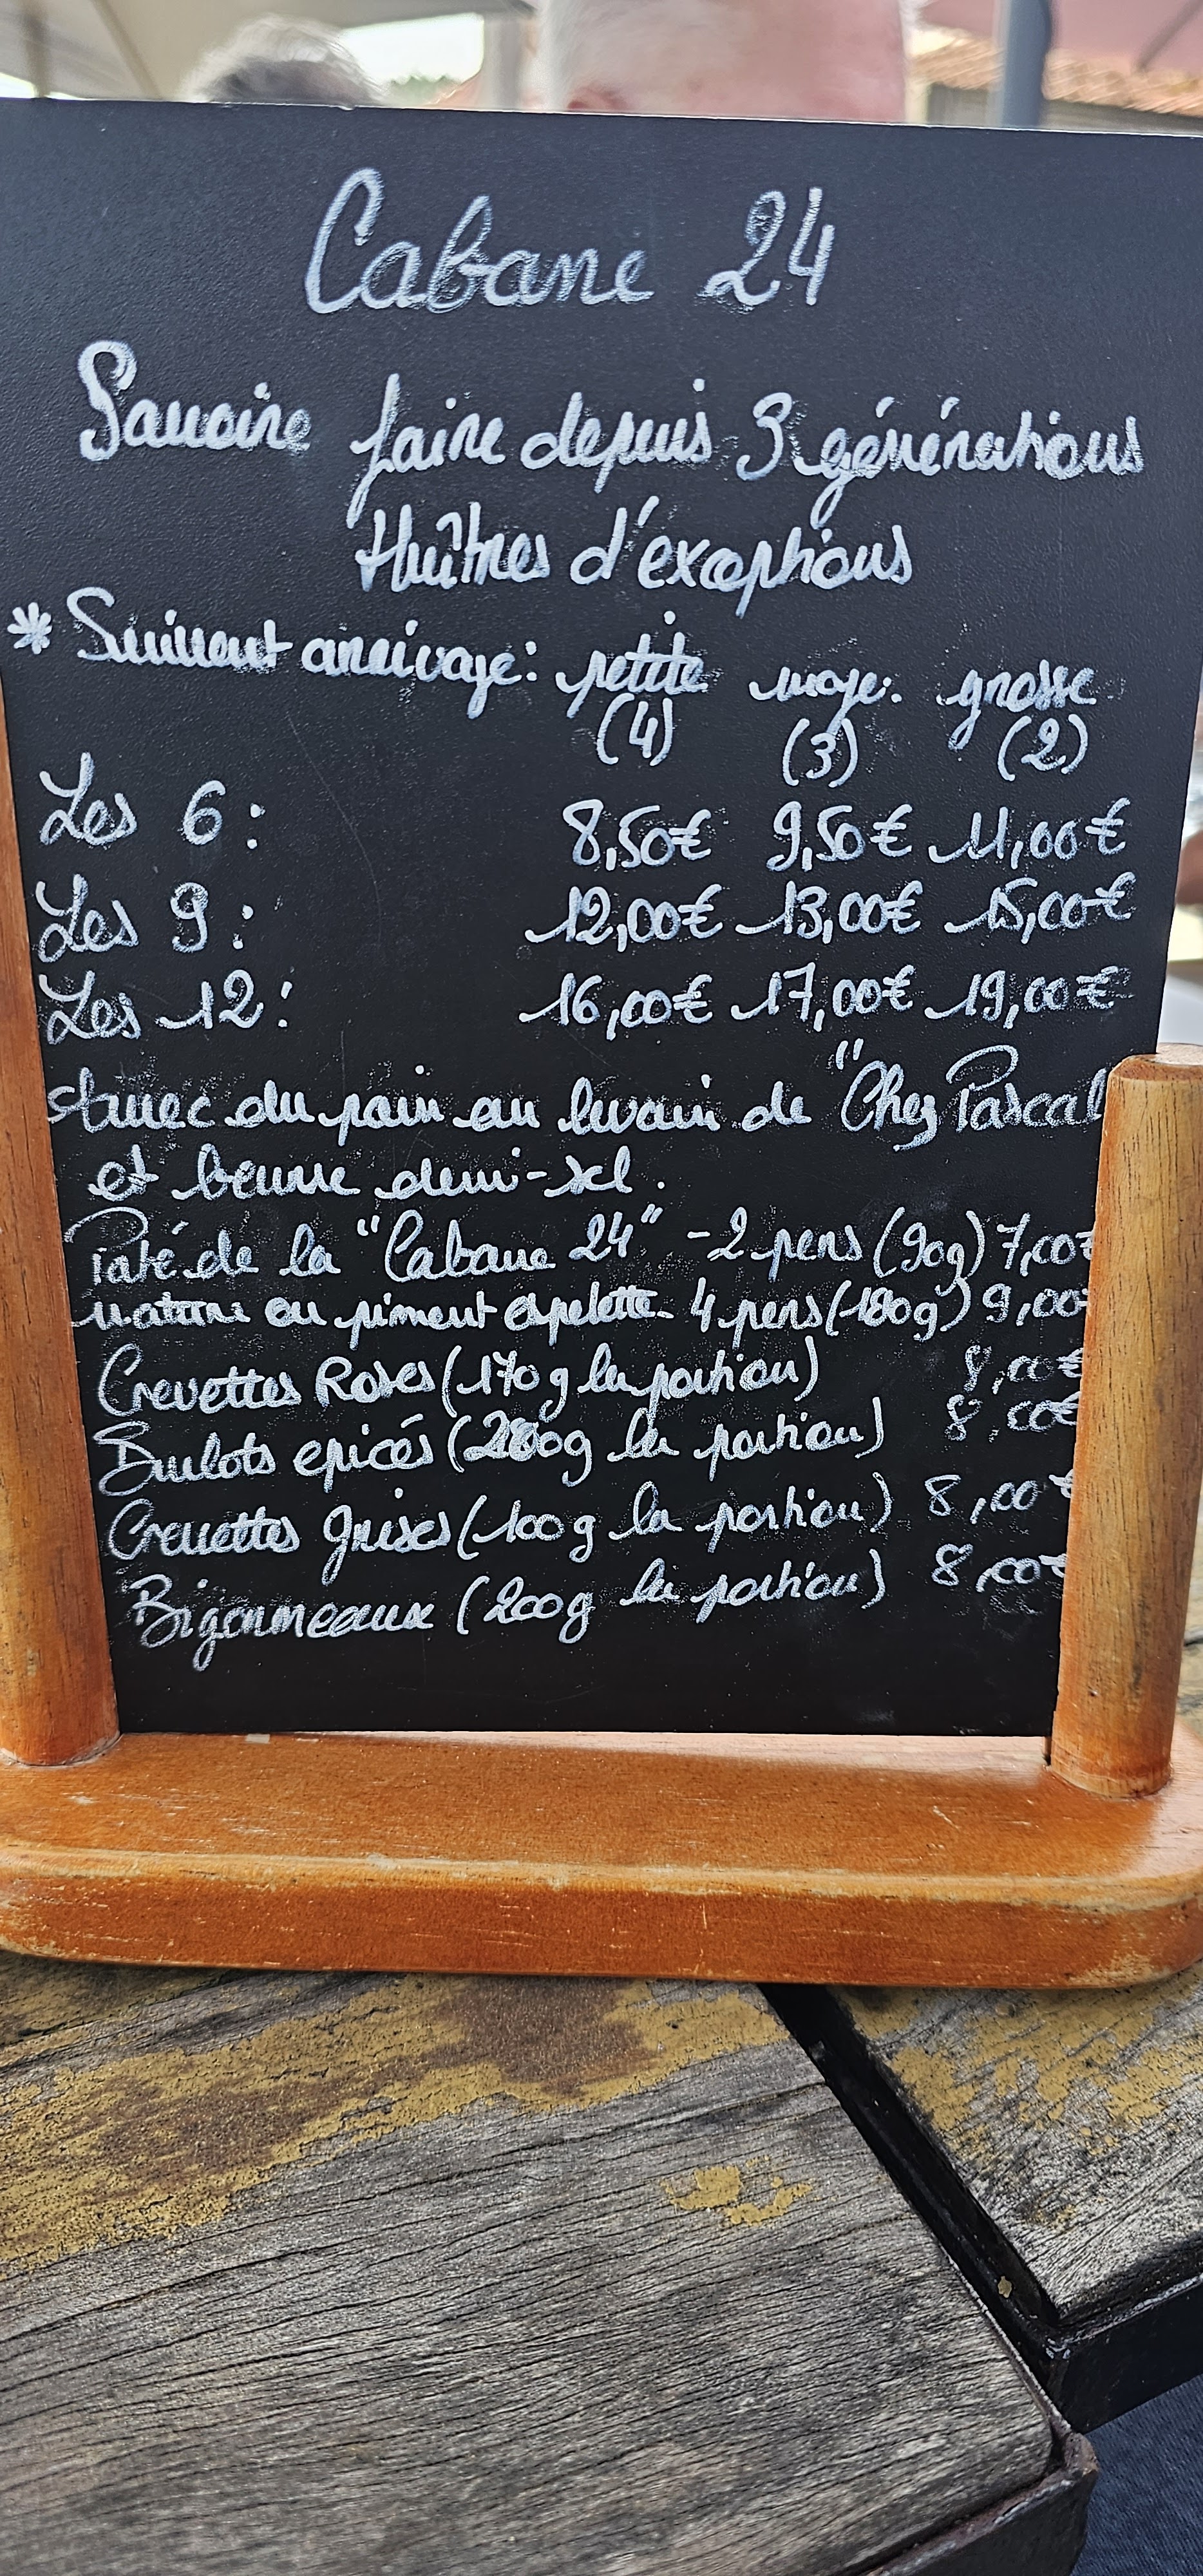 Cabane 24
Savoire faire depuis 3 générations
Huîtres d'exceptions
* Suivent arrivage: petite moye. grosse
(4) (3) (2)
Les 6: 8,50€ 9,50€ 11,00€
Les 9: 12,00€ 13,00€ 15,00€
Les 12: 16,00€ 17,00€ 19,00€
Avec du pain au levain de "Chez Pascal
et beurre demi-sel.
Paté de la "Cabane 24" - 2 pers (90g) 7,00€
nature ou piment espelette. 4 pers (180g) 9,00
Crevettes Roses (170g la portion) 8,00€
Bulots epicés (200g la portion) 8,00€
Crevettes grises (100g la portion) 8,00€
Bigonmeaux (200g la portion) 8,00€